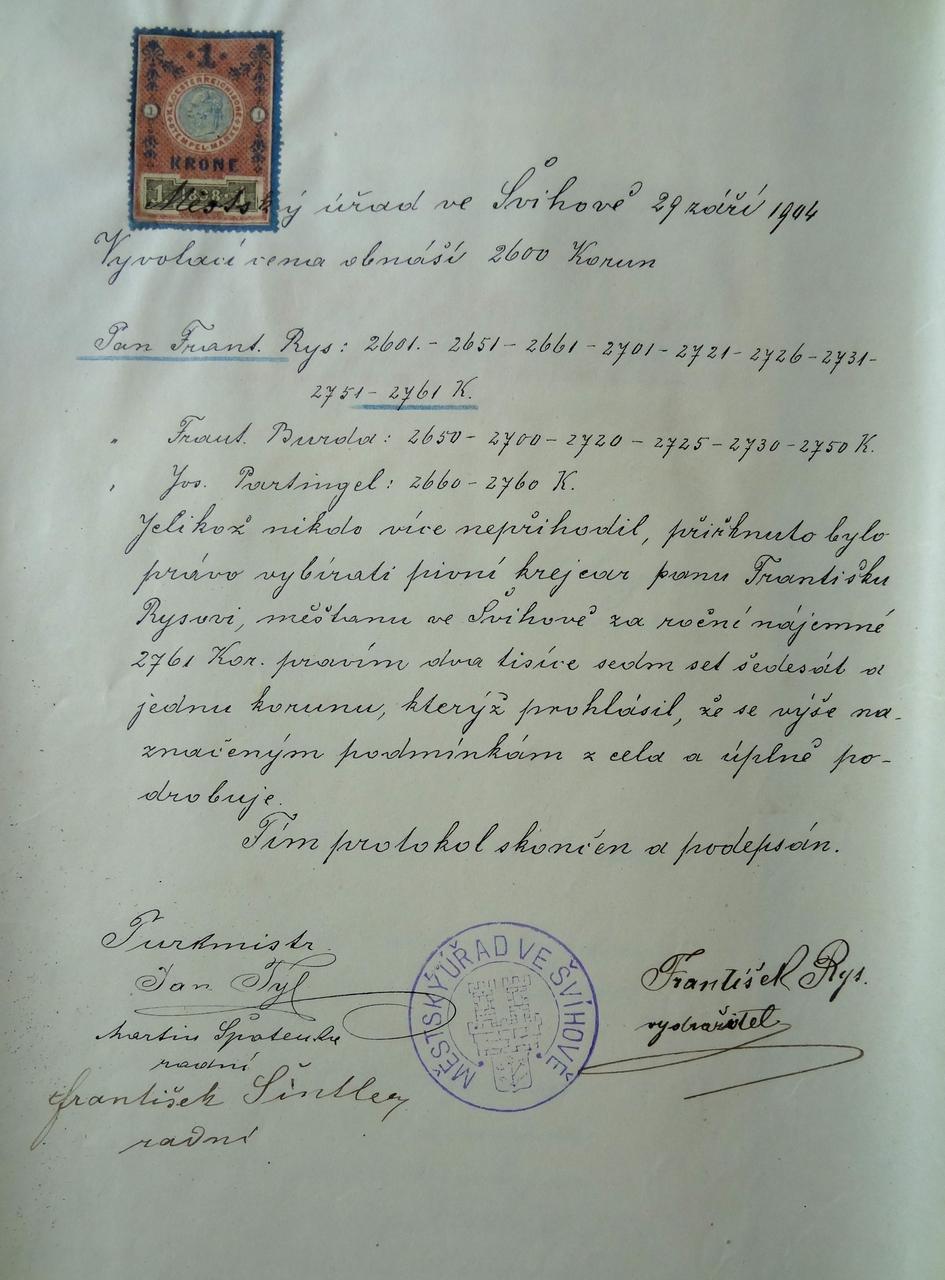 1
K.K. OESTERREICHISCHE STEMPEL-MARKE
1 1
KRONE
1 1898 1
Městský úřad ve Švihově 29 září 1904
Vyvolací cena obnáší 2600 Korun
Pan Frant. Rys: 2601.- 2651 - 2661 - 2701 - 2721 - 2726 - 2731-
2751 - 2761 K.
" Frant. Burda: 2650 - 2700 - 2720 - 2725 - 2730 - 2750 K.
" Jos. Partingel: 2660 - 2760 K.
Jelikož nikdo více nepřihodil, přiřknuto bylo
právo vybírati pivní krejcar panu Františku
Rysovi, měšťanu ve Švihově za roční nájemné
2761 Kor. pravím dva tisíce sedm set šedesát a
jednu korunu, kterýž prohlásil, že se výše na-
značeným podmínkám z cela a úplně po-
drobuje.
Tím protokol skončen a podepsán.
Purkmistr
Jan Týl
Martin
radní
František
radní
MĚSTSKÝ ÚŘAD VE ŠVÍHOVĚ
František Rys.
vydražitel